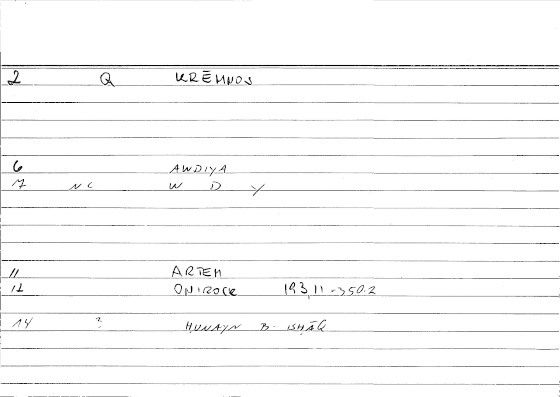 2 Q KRĒMNOS
6 AWDIYA
17 NC W D Y
11 ARTEM
12 ONIROCR 193,11-350.2
14 ? HUNAYN B. ISḤĀQ